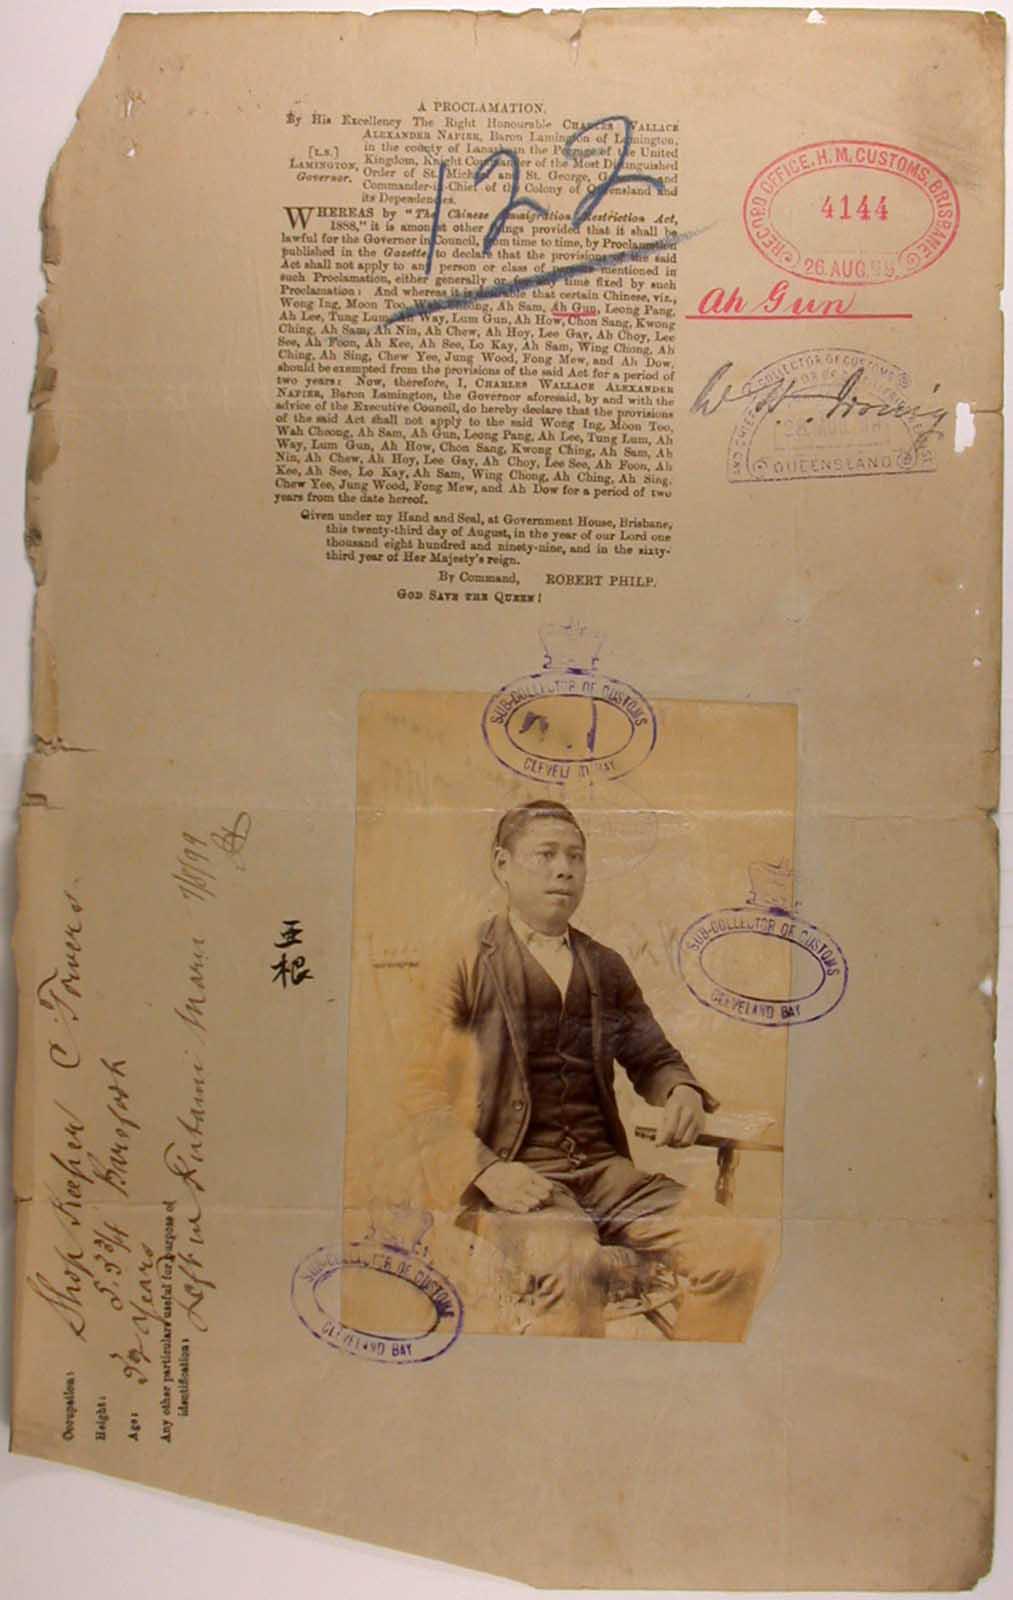 A PROCLAMATION.
By His Excellency The Right Honourable CHARLES WALLACE
ALEXANDER NAPIER, Baron Lamington of Lamington,
[L.S.]
LAMINGTON,
Governor.
in the county of Lanark in the Peerage of the United
Kingdom, Knight Commander of the Most Distinguished
Order of St. Michael and St. George, Governor and
Commander-in-Chief of the Colony of Queensland and
its Dependencies.
WHEREAS by "The Chinese Immigration Restriction Act,
1888," it is amongst other things provided that it shall be
lawful for the Governor in Council, from time to time, by Proclamation
published in the Gazette, to declare that the provisions of the said
Act shall not apply to any person or class of persons mentioned in
such Proclamation, either generally or for any time fixed by such
Proclamation: And whereas it is desirable that certain Chinese, viz.,
Wong Ing, Moon Too, Wah Cheong, Ah Sam, Ah Gun, Leong Pang,
Ah Lee, Tung Lum, Ah Way, Lum Gun, Ah How, Chon Sang, Kwong
Ching, Ah Sam, Ah Nin, Ah Chew, Ah Hoy, Lee Gay, Ah Choy, Lee
See, Ah Foon, Ah Kee, Ah See, Lo Kay, Ah Sam, Wing Chong, Ah
Ching, Ah Sing, Chew Yee, Jung Wood, Fong Mew, and Ah Dow,
should be exempted from the provisions of the said Act for a period of
two years: Now, therefore, I, CHARLES WALLACE ALEXANDER
NAPIER, Baron Lamington, the Governor aforesaid, by and with the
advice of the Executive Council, do hereby declare that the provisions
of the said Act shall not apply to the said Wong Ing, Moon Too,
Wah Cheong, Ah Sam, Ah Gun, Leong Pang, Ah Lee, Tung Lum, Ah
Way, Lum Gun, Ah How, Chon Sang, Kwong Ching, Ah Sam, Ah
Nin, Ah Chew, Ah Hoy, Lee Gay, Ah Choy, Lee See, Ah Foon, Ah
Kee, Ah See, Lo Kay, Ah Sam, Wing Chong, Ah Ching, Ah Sing,
Chew Yee, Jung Wood, Fong Mew, and Ah Dow for a period of two
years from the date hereof.
Given under my Hand and Seal, at Government House, Brisbane,
this twenty-third day of August, in the year of our Lord one
thousand eight hundred and ninety-nine, and in the sixty-
third year of Her Majesty's reign.
By Command, ROBERT PHILP.
GOD SAVE THE QUEEN!
122
RECORD OFFICE, H.M. CUSTOMS, BRISBANE
4144
26.AUG.99
Ah Gun
COLLECTOR OF CUSTOMS
QUEENSLAND
SUB-COLLECTOR OF CUSTOMS
CLEVELAND BAY
SUB-COLLECTOR OF CUSTOMS
CLEVELAND BAY
SUB-COLLECTOR OF CUSTOMS
CLEVELAND BAY
亜根
Occupation: Shop Keeper C Towers.
Height: 5. 3 3/4 Barefoot
Age: 32 Years
Any other particulars useful for purpose of
identification: Left in Futami Maru